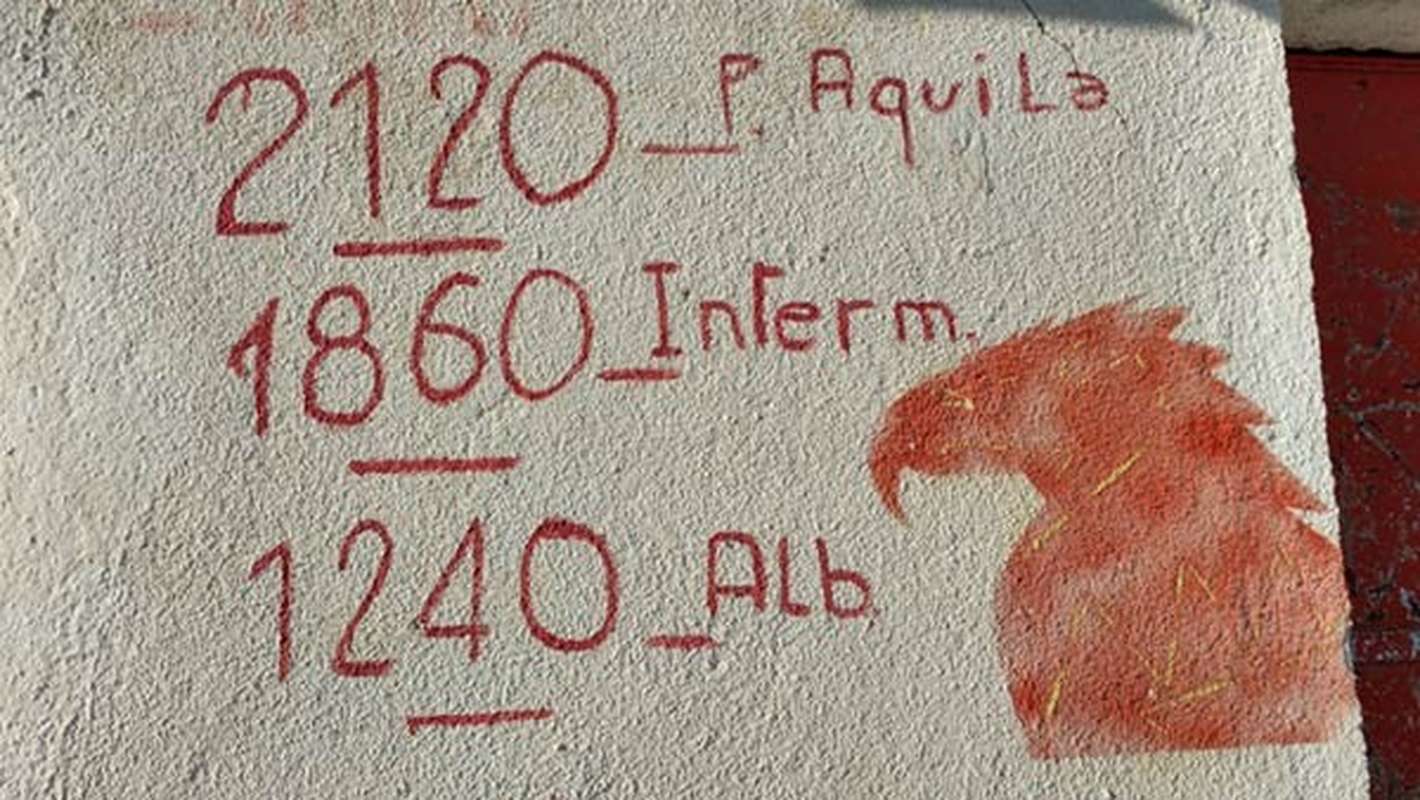 2120 _ P. Aquila
1860 _ Interm.
1240 _ Alb.